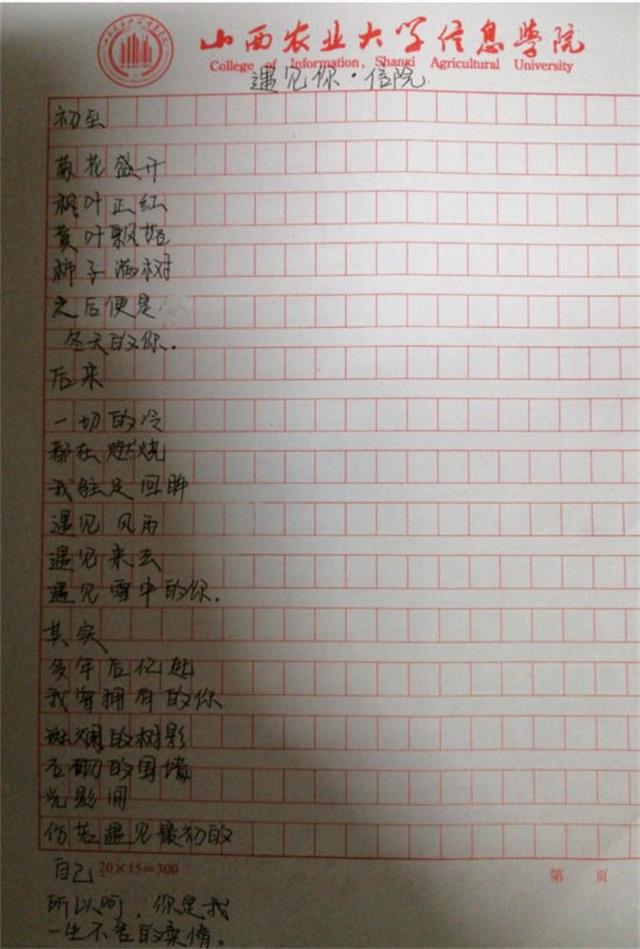 山西农业大学信息学院
College of Information, Shanxi Agricultural University
遇见你·信院
初至
菊花盛开
枫叶正红
黄叶飘始
柿子满树
之后便是
冬天的你.
后来
一切的冷
都在燃烧
我驻足回眸
遇见风雨
遇见来去
遇见雪中的你.
其实
多年后忆起
我曾拥有的你
斑斓的树影
石砌的围墙
光影间
仿若遇见最初的
自己
20×15=300
第 页
所以呵,你是我
一生不舍的柔情。